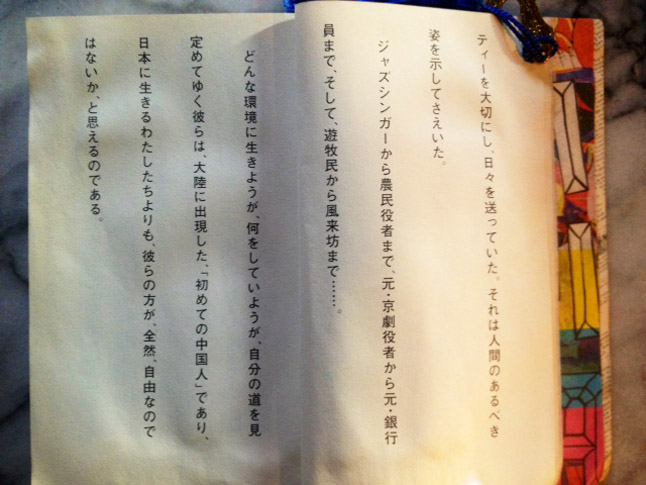 ティーを大切にし、日々を送っていた。それは人間のあるべき
姿を示してさえいた。
ジャズシンガーから農民役者まで、元・京劇役者から元・銀行
員まで、そして、遊牧民から風来坊まで……。
どんな環境に生きようが、何をしていようが、自分の道を見
定めてゆく彼らは、大陸に出現した、「初めての中国人」であり、
日本に生きるわたしたちよりも、彼らの方が、全然、自由なので
はないか、と思えるのである。